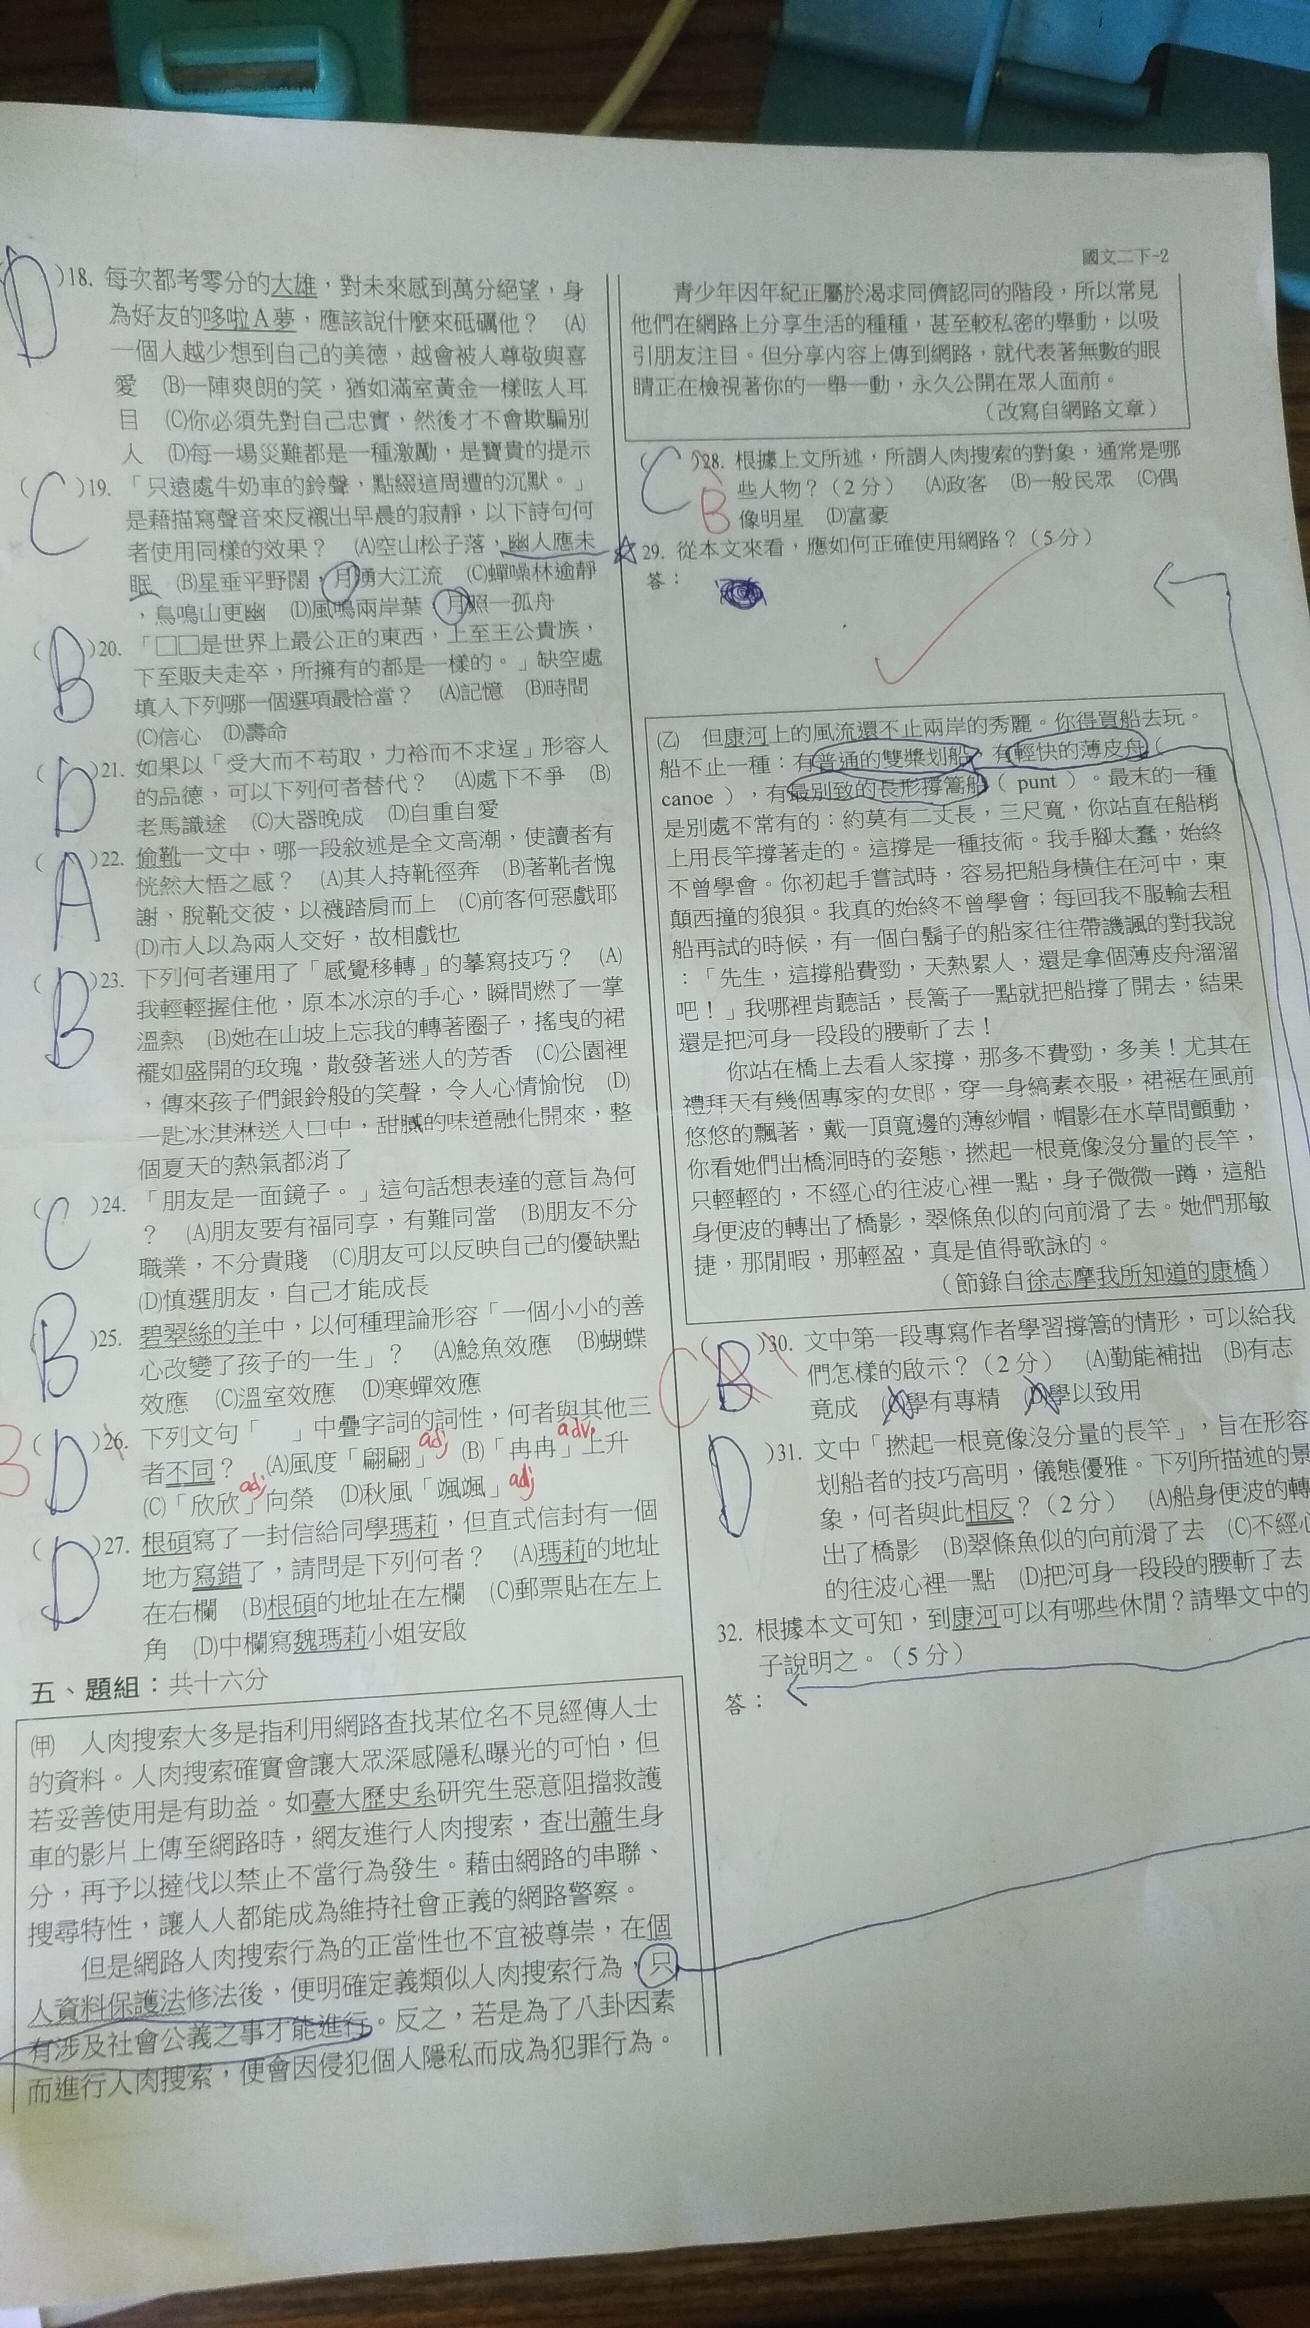 國文二下-2
D )18. 每次都考零分的大雄，對未來感到萬分絕望，身
為好友的哆啦A夢，應該說什麼來砥礪他？　(A)
一個人越少想到自己的美德，越會被人尊敬與喜
愛　(B)一陣爽朗的笑，猶如滿室黃金一樣眩人耳
目　(C)你必須先對自己忠實，然後才不會欺騙別
人　(D)每一場災難都是一種激勵，是寶貴的提示
( C )19. 「只遠處牛奶車的鈴聲，點綴這周遭的沉默。」
是藉描寫聲音來反襯出早晨的寂靜，以下詩句何
者使用同樣的效果？　(A)空山松子落，幽人應未
眠　(B)星垂平野闊，月湧大江流　(C)蟬噪林逾靜
，鳥鳴山更幽　(D)風鳴兩岸葉，月照一孤舟
( B )20. 「□□是世界上最公正的東西，上至王公貴族，
下至販夫走卒，所擁有的都是一樣的。」缺空處
填入下列哪一個選項最恰當？　(A)記憶　(B)時間
(C)信心　(D)壽命
( D )21. 如果以「受大而不苟取，力裕而不求逞」形容人
的品德，可以下列何者替代？　(A)處下不爭　(B)
老馬識途　(C)大器晚成　(D)自重自愛
( A )22. 偷靴一文中，哪一段敘述是全文高潮，使讀者有
恍然大悟之感？　(A)其人持靴徑奔　(B)著靴者愧
謝，脫靴交彼，以襪踏肩而上　(C)前客何惡戲耶
(D)市人以為兩人交好，故相戲也
( B )23. 下列何者運用了「感覺移轉」的摹寫技巧？　(A)
我輕輕握住他，原本冰涼的手心，瞬間燃了一掌
溫熱　(B)她在山坡上忘我的轉著圈子，搖曳的裙
襬如盛開的玫瑰，散發著迷人的芳香　(C)公園裡
，傳來孩子們銀鈴般的笑聲，令人心情愉悅　(D)
一匙冰淇淋送入口中，甜膩的味道融化開來，整
個夏天的熱氣都消了
( C )24. 「朋友是一面鏡子。」這句話想表達的意旨為何
？　(A)朋友要有福同享，有難同當　(B)朋友不分
職業，不分貴賤　(C)朋友可以反映自己的優缺點
(D)慎選朋友，自己才能成長
( B )25. 碧翠絲的羊中，以何種理論形容「一個小小的善
心改變了孩子的一生」？　(A)鯰魚效應　(B)蝴蝶
效應　(C)溫室效應　(D)寒蟬效應
B ( D )26. 下列文句「　」中疊字詞的詞性，何者與其他三
者不同？　(A)風度「翩翩」adj　(B)「冉冉」adv上升
(C)「欣欣」adj向榮　(D)秋風「颯颯」adj
( D )27. 根碩寫了一封信給同學瑪莉，但直式信封有一個
地方寫錯了，請問是下列何者？　(A)瑪莉的地址
在右欄　(B)根碩的地址在左欄　(C)郵票貼在左上
角　(D)中欄寫魏瑪莉小姐安啟
五、題組：共十六分
(甲)　人肉搜索大多是指利用網路查找某位名不見經傳人士
的資料。人肉搜索確實會讓大眾深感隱私曝光的可怕，但
若妥善使用是有助益。如臺大歷史系研究生惡意阻擋救護
車的影片上傳至網路時，網友進行人肉搜索，查出蕭生身
分，再予以撻伐以禁止不當行為發生。藉由網路的串聯、
搜尋特性，讓人人都能成為維持社會正義的網路警察。
但是網路人肉搜索行為的正當性也不宜被尊崇，在個
人資料保護法修法後，便明確定義類似人肉搜索行為，只
有涉及社會公義之事才能進行。反之，若是為了八卦因素
而進行人肉搜索，便會因侵犯個人隱私而成為犯罪行為。
青少年因年紀正屬於渴求同儕認同的階段，所以常見
他們在網路上分享生活的種種，甚至較私密的舉動，以吸
引朋友注目。但分享內容上傳到網路，就代表著無數的眼
睛正在檢視著你的一舉一動，永久公開在眾人面前。
（改寫自網路文章）
( C )28. 根據上文所述，所謂人肉搜索的對象，通常是哪
B 些人物？（2分）　(A)政客　(B)一般民眾　(C)偶
像明星　(D)富豪
☆29. 從本文來看，應如何正確使用網路？（5分）
答：
(乙)　但康河上的風流還不止兩岸的秀麗。你得買船去玩。
船不止一種：有普通的雙槳划船，有輕快的薄皮舟（
canoe ），有最別致的長形撐篙船（ punt ）。最末的一種
是別處不常有的：約莫有二丈長，三尺寬，你站直在船梢
上用長竿撐著走的。這撐是一種技術。我手腳太蠢，始終
不曾學會。你初起手嘗試時，容易把船身橫住在河中，東
顛西撞的狼狽。我真的始終不曾學會；每回我不服輸去租
船再試的時候，有一個白鬍子的船家往往帶譏諷的對我說
：「先生，這撐船費勁，天熱累人，還是拿個薄皮舟溜溜
吧！」我哪裡肯聽話，長篙子一點就把船撐了開去，結果
還是把河身一段段的腰斬了去！
你站在橋上去看人家撐，那多不費勁，多美！尤其在
禮拜天有幾個專家的女郎，穿一身縞素衣服，裙裾在風前
悠悠的飄著，戴一頂寬邊的薄紗帽，帽影在水草間顫動，
你看她們出橋洞時的姿態，撚起一根竟像沒分量的長竿，
只輕輕的，不經心的往波心裡一點，身子微微一蹲，這船
身便波的轉出了橋影，翠條魚似的向前滑了去。她們那敏
捷，那閒暇，那輕盈，真是值得歌詠的。
（節錄自徐志摩我所知道的康橋）
C ( B )30. 文中第一段專寫作者學習撐篙的情形，可以給我
們怎樣的啟示？（2分）　(A)勤能補拙　(B)有志
竟成　(C)學有專精　(D)學以致用
D )31. 文中「撚起一根竟像沒分量的長竿」，旨在形容
划船者的技巧高明，儀態優雅。下列所描述的景
象，何者與此相反？（2分）　(A)船身便波的轉
出了橋影　(B)翠條魚似的向前滑了去　(C)不經心
的往波心裡一點　(D)把河身一段段的腰斬了去
32. 根據本文可知，到康河可以有哪些休閒？請舉文中的
子說明之。（5分）
答：